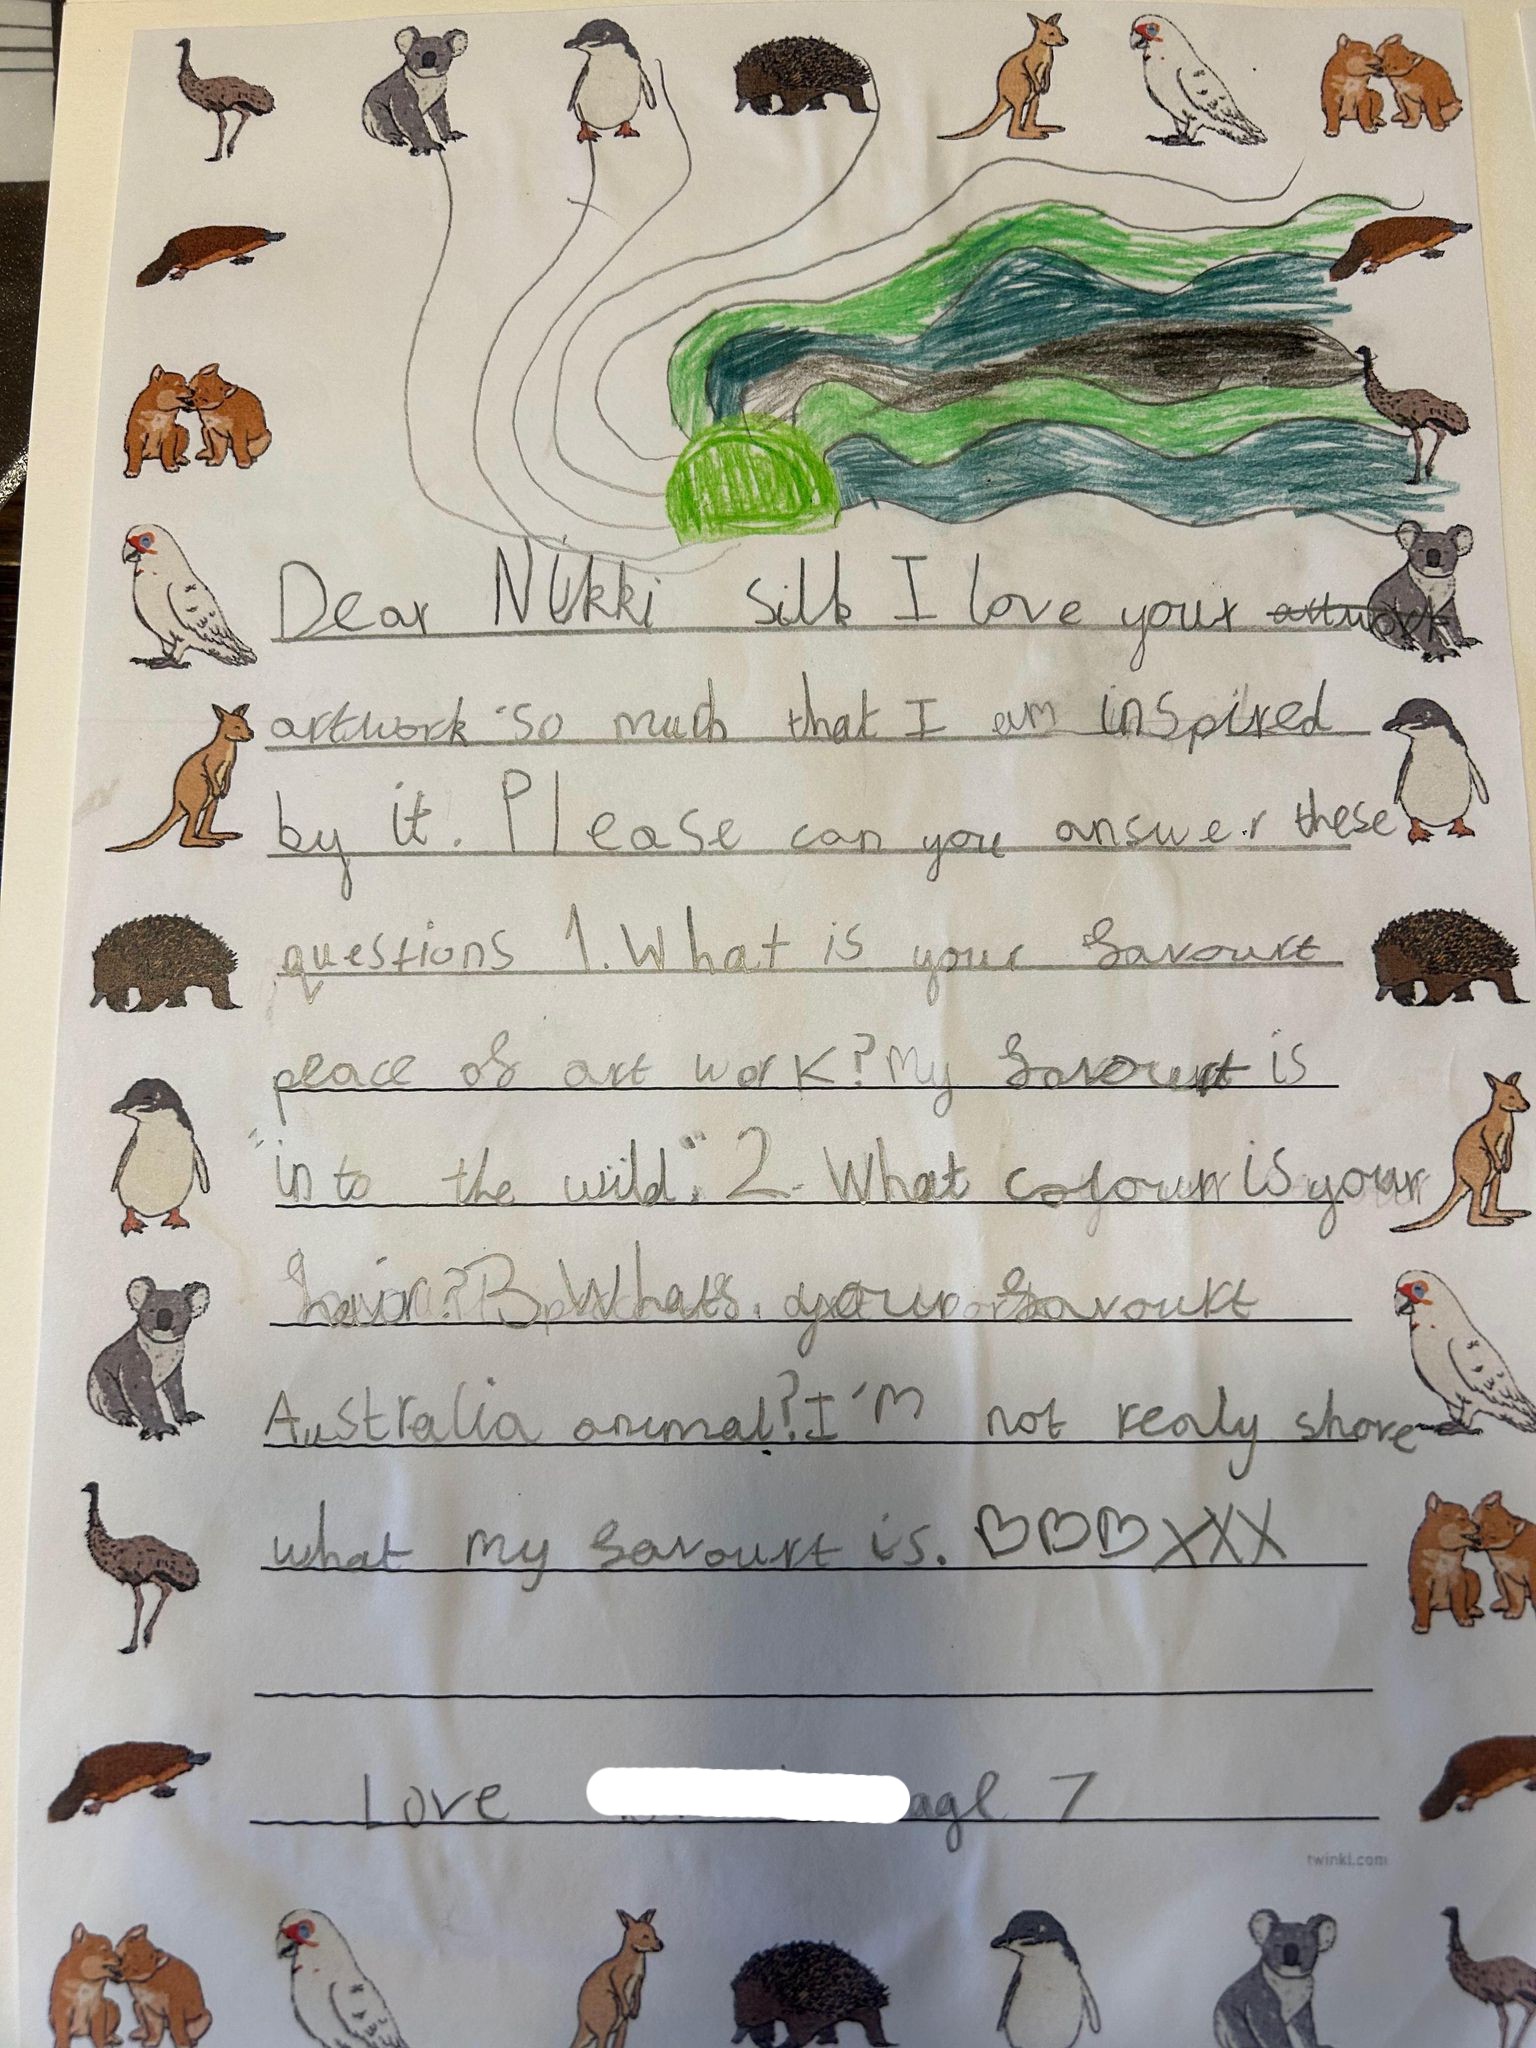 Dear Nikki Silk I love your artwork
artwork so much that I am inspired
by it. Please can you answer these
questions 1. What is your favourt
peace of art work? My favourt is
"into the wild." 2. What colour is your
hair? 3. Whats your favourt
Australia animal? I'M not realy shore
what my favourt is. ♡♡♡XXX
Love age 7
twinkl.com